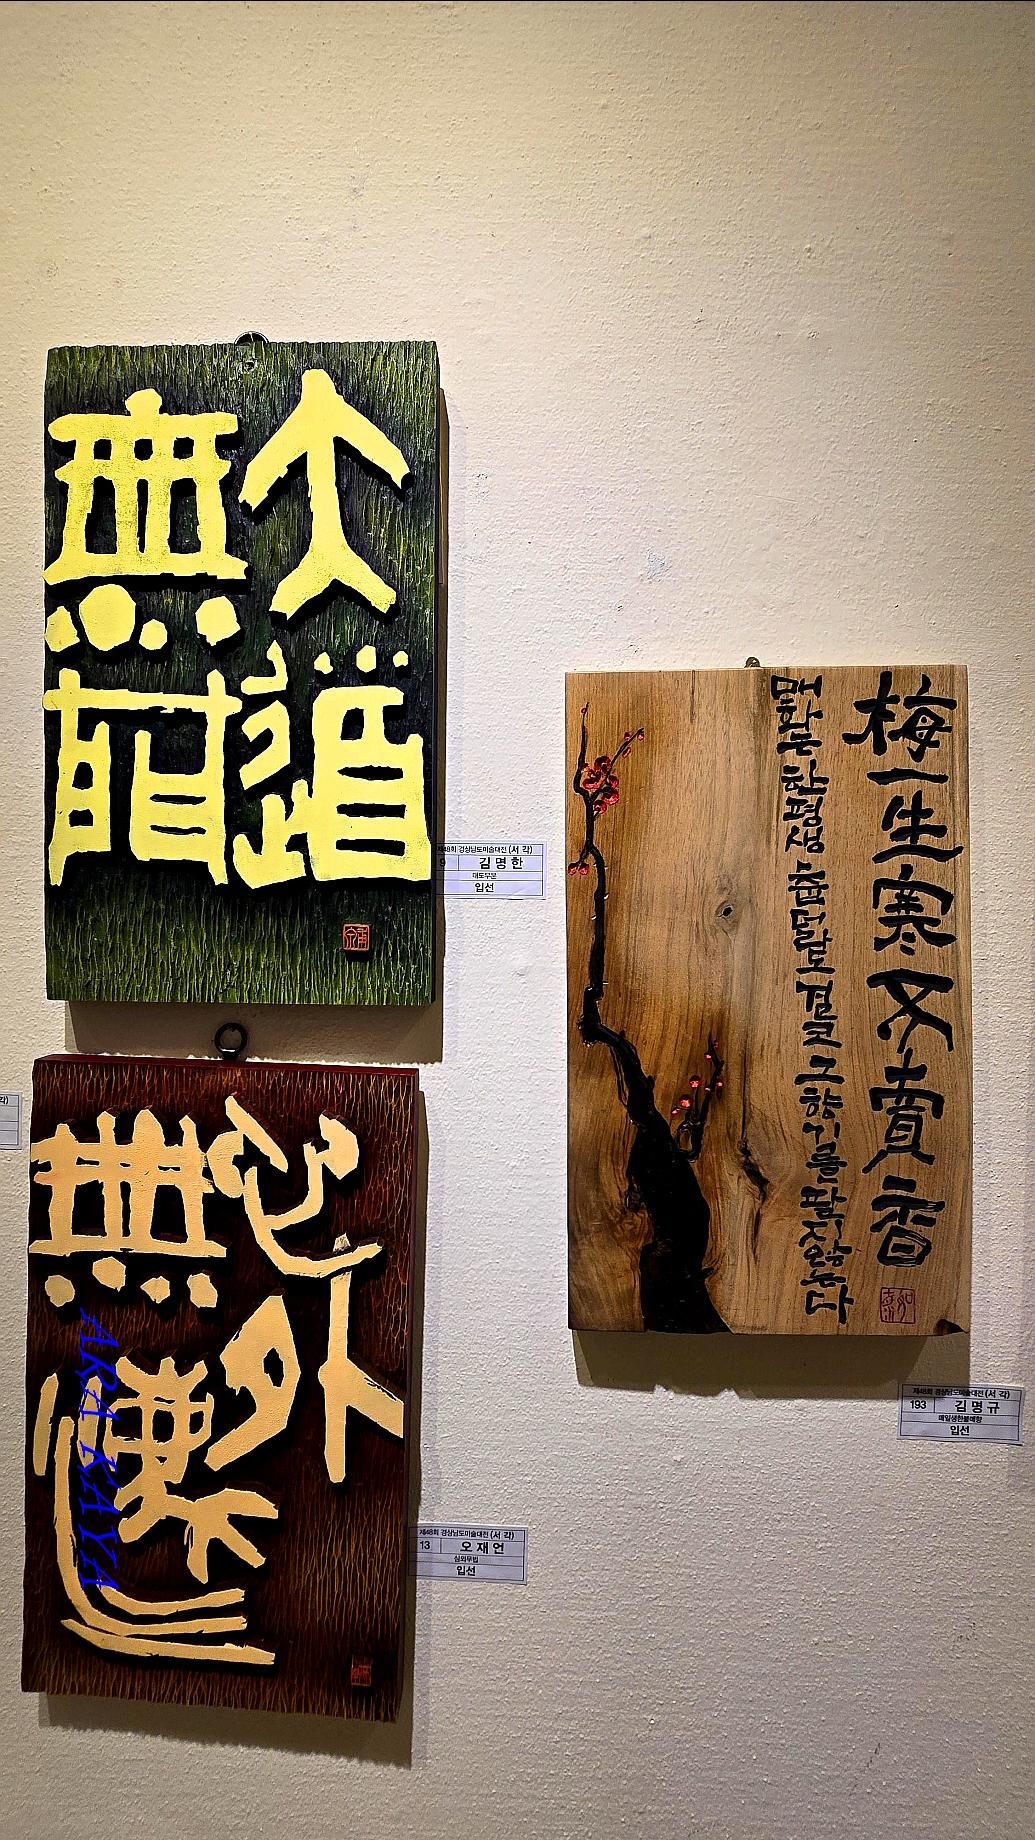 大道
無門
제48회 경상남도미술대전 (서 각)
9 김 명 한
대도무문
입선
心外
無法
제48회 경상남도미술대전 (서 각)
13 오 재 언
심외무법
입선
ARA KAYA
梅一生寒不賣香
매화는 한평생 춥더라도 결코 그 향기를 팔지 않는다
제48회 경상남도미술대전 (서 각)
193 김 명 규
매일생한불매향
입선
각)